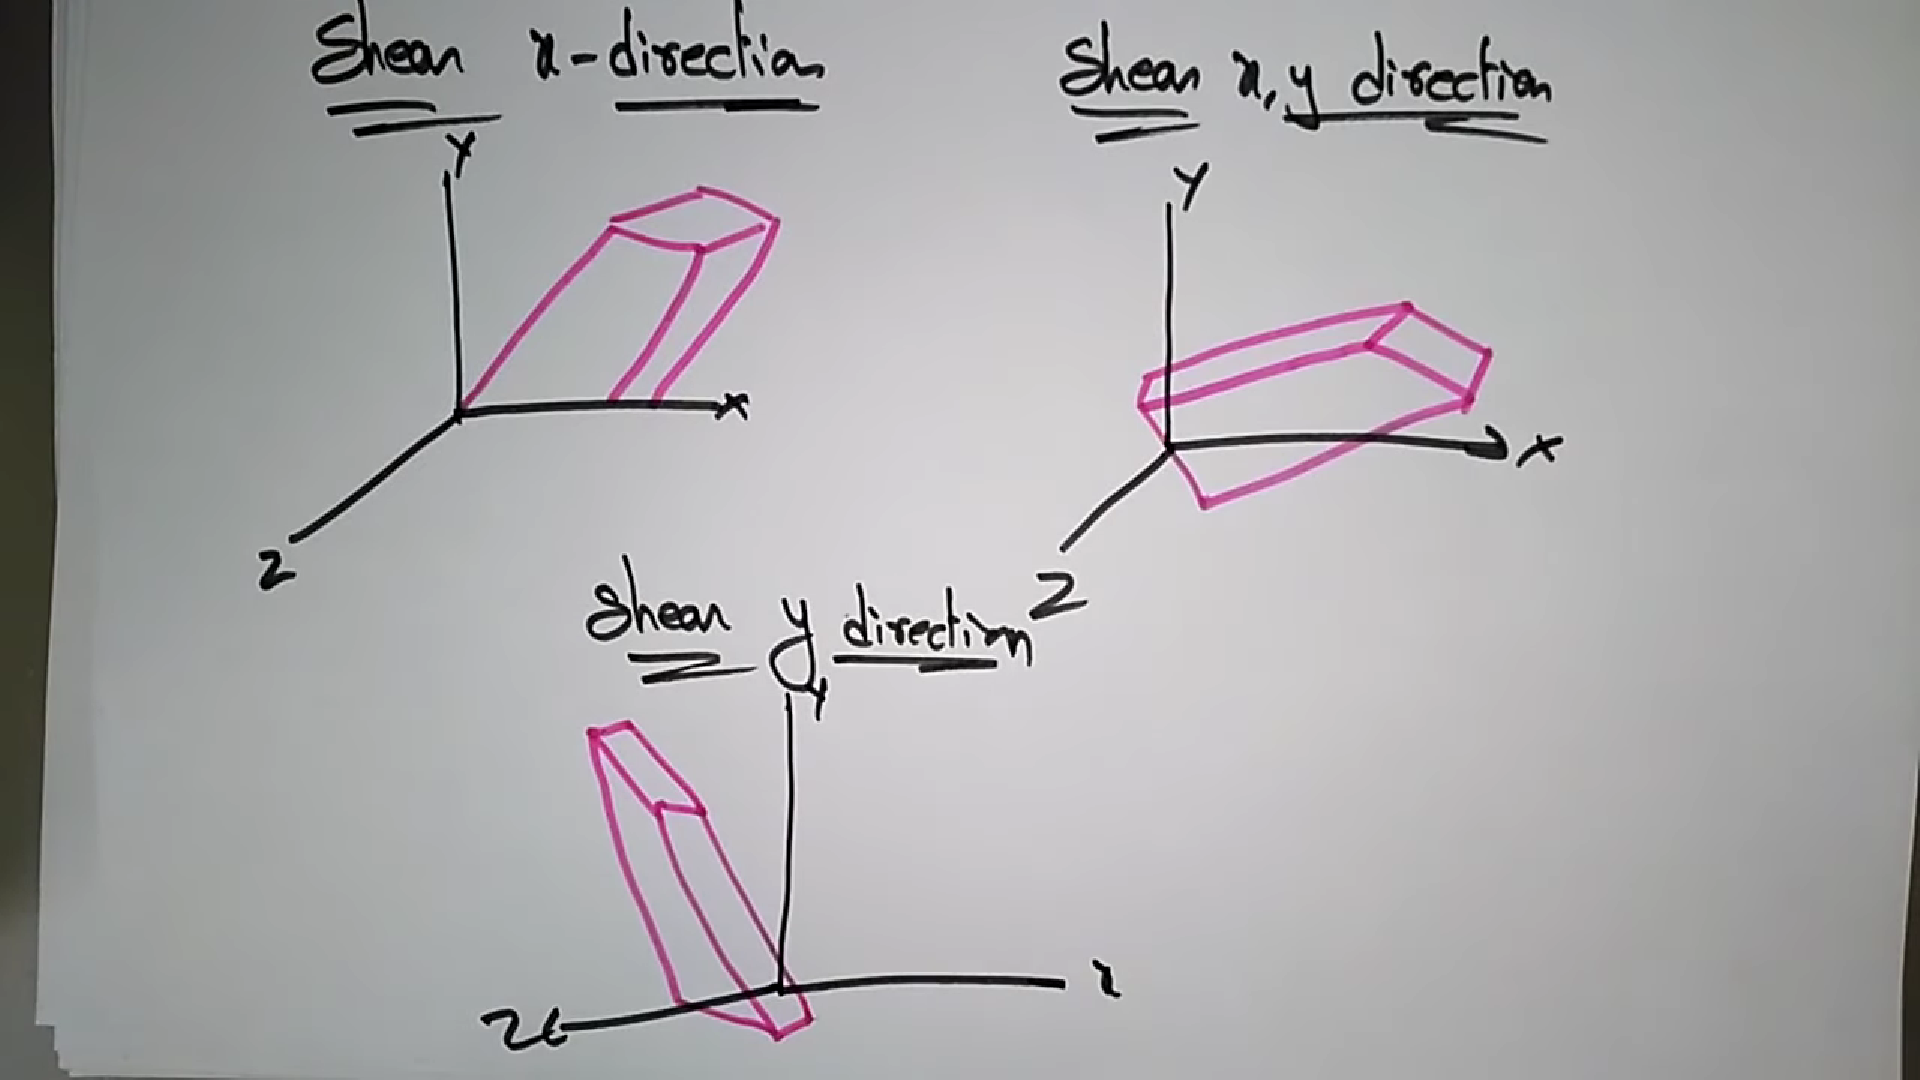 Shear x-direction
Y
X
Z
Shear x,y direction
Y
X
Z
Shear y direction
Y
x
Z